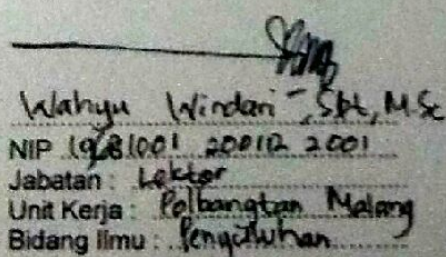 Wahyu Windari, SPt, M.Sc
NIP 19681001 200112 2001
Jabatan : Lektor
Unit Kerja : Polbangtan Malang
Bidang Ilmu : Penyuluhan